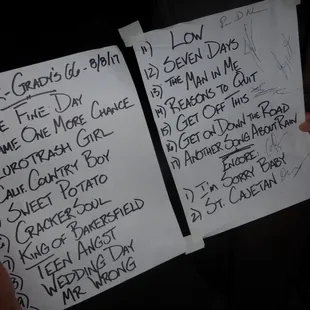 Grady's 66 - 8/8/17
Fine Day
One More Chance
Eurotrash Girl
Calif. Country Boy
Sweet Potato
Cracker Soul
King of Bakersfield
Teen Angst
Wedding Day
Mr Wrong
11) Low
12) Seven Days
13) The Man in Me
14) Reasons to Quit
15) Get Off This
16) Get on Down the Road
17) Another Song About Rain
Encore
1) I'm Sorry Baby
2) St. Cajetan